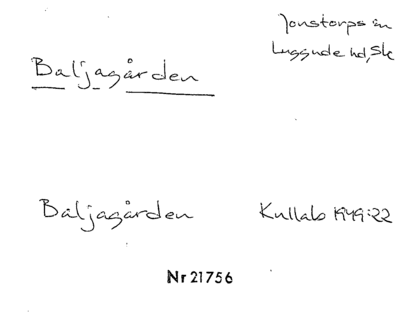 Jonstorps sn
Luggude hd, Sk
Baljagården
Baljagården Kullab 1949:22
Nr 21756